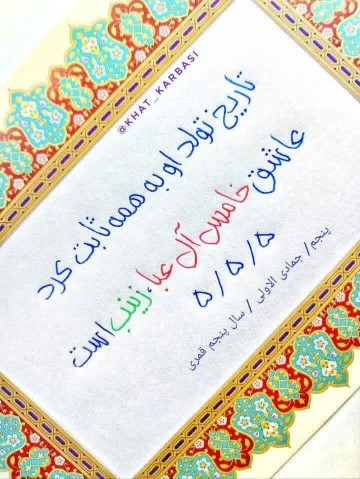 @KHAT_KARBASI
تاریخ تولد او به همه ثابت کرد
عاشق خامس آل عبا، زینب است
۵/۵/۵
پنجم/ جمادی الاولی/ سال پنجم قمری